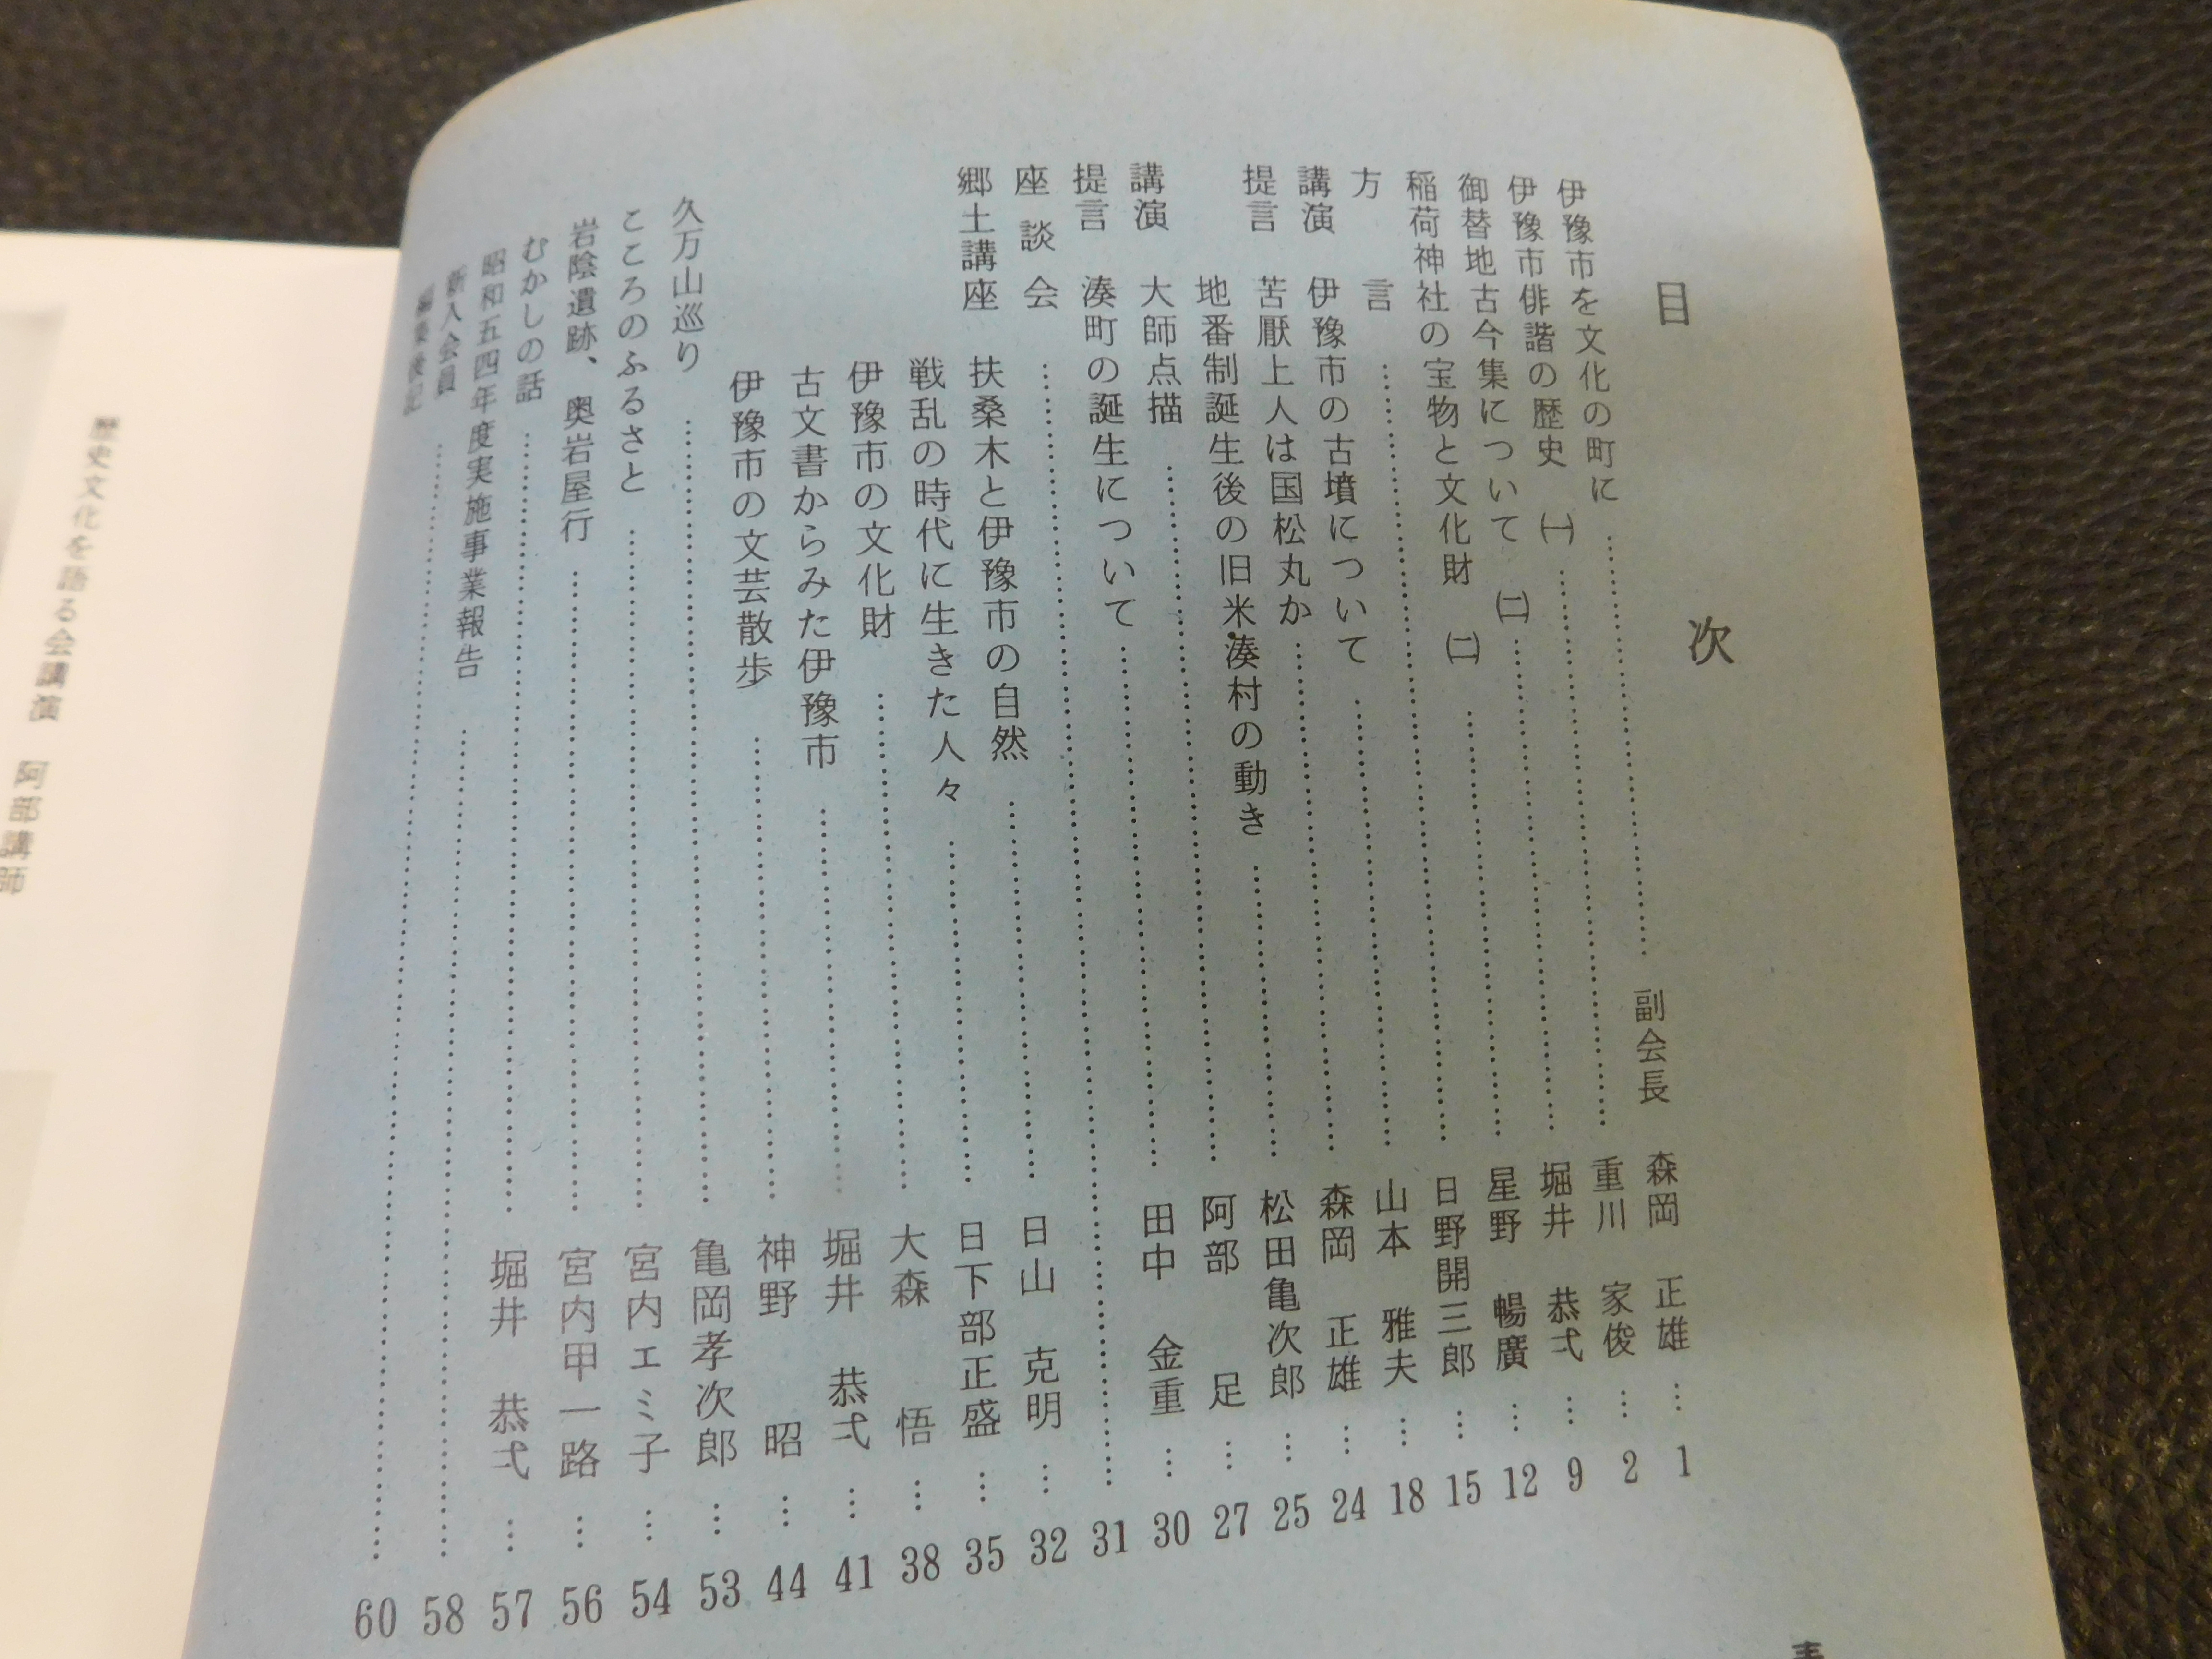 目次
伊豫市を文化の町に……副会長 森岡 正雄…1
伊豫市俳諧の歴史 ㈠……重川 家俊…2
御替地古今集について ㈡……堀井 恭弌…9
稲荷神社の宝物と文化財 ㈡……星野 暢廣…12
方言……日野開三郎…15
講演 伊豫市の古墳について……山本 雅夫…18
提言 苦厭上人は国松丸か……森岡 正雄…24
地番制誕生後の旧米湊村の動き……松田亀次郎…25
講演 大師点描……阿部 足…27
提言 湊町の誕生について……田中 金重…30
座談会……31
郷土講座 扶桑木と伊豫市の自然……日山 克明…32
戦乱の時代に生きた人々……日下部正盛…35
伊豫市の文化財……大森 悟…38
古文書からみた伊豫市……堀井 恭弌…41
伊豫市の文芸散歩……神野 昭…44
久万山巡り……亀岡孝次郎…53
こころのふるさと……宮内エミ子…54
岩陰遺跡、奥岩屋行……宮内甲一路…56
むかしの話……堀井 恭弌…57
昭和五四年度実施事業報告……58
新入会員……60
編集後記
歴史文化を語る会講演 阿部講師